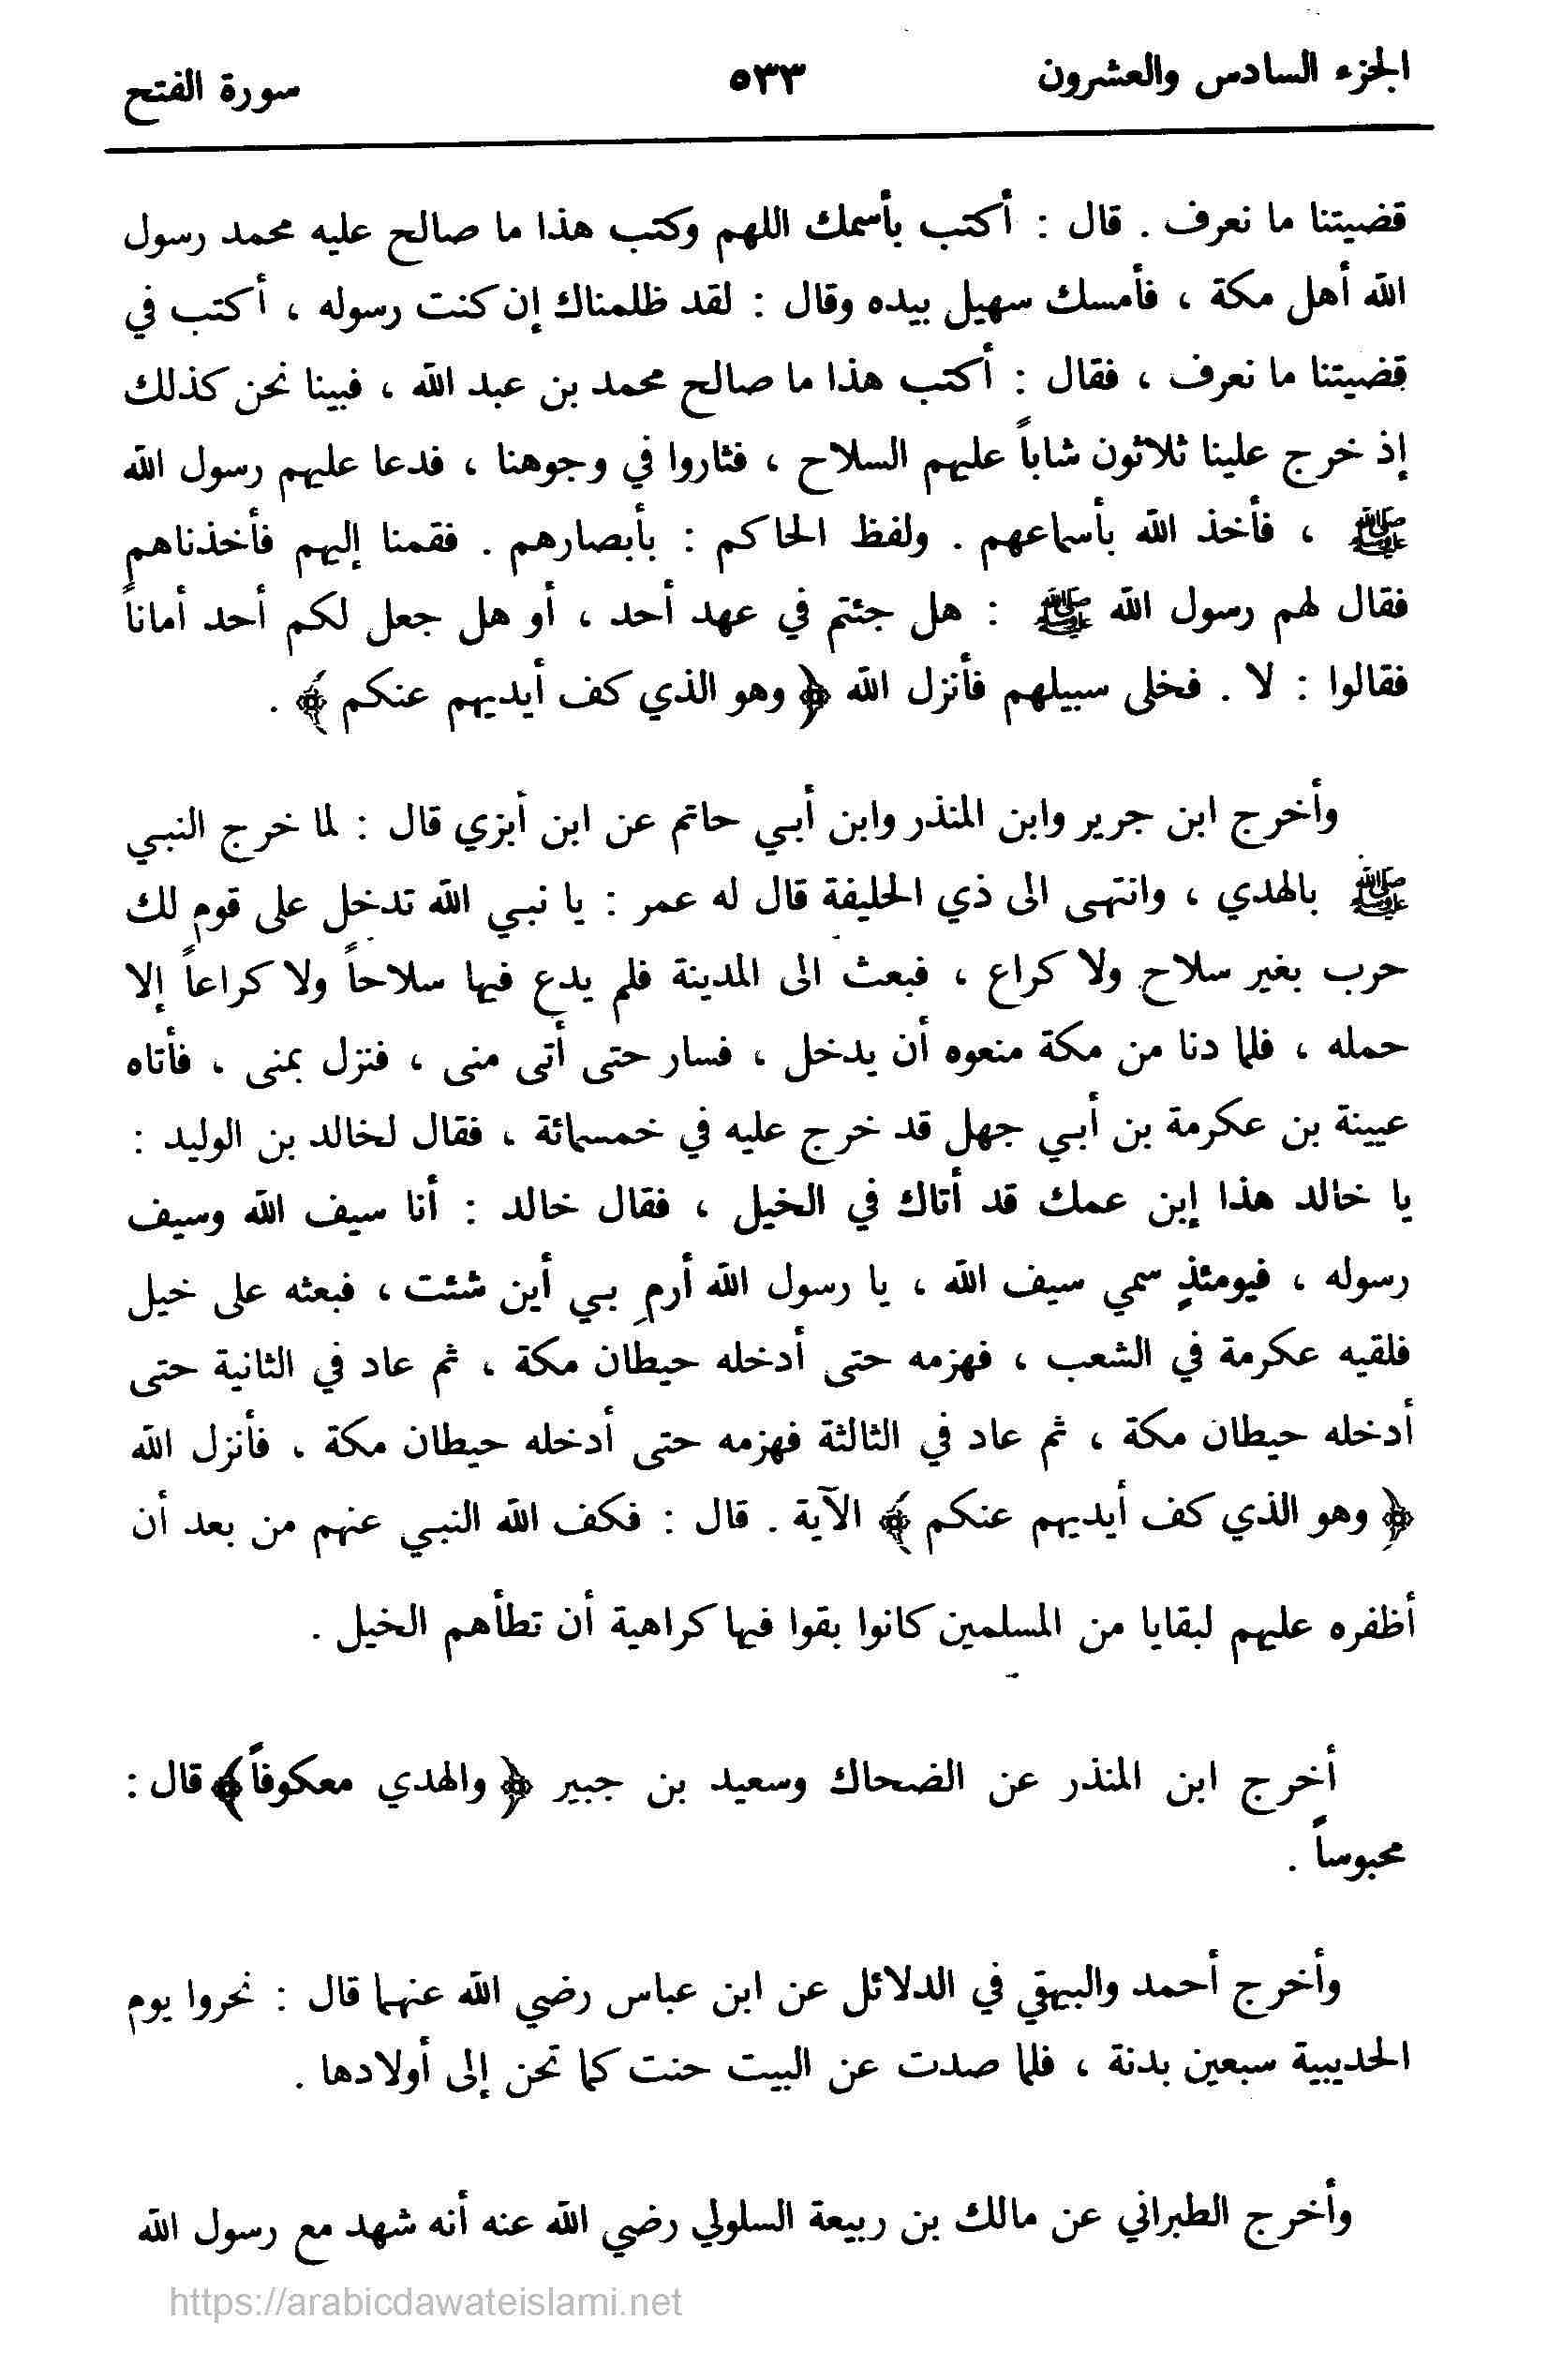 الجزء السادس والعشرون ٥٣٣ سورة الفتح
قضيتنا ما نعرف . قال : أكتب بأسمك اللهم وكتب هذا ما صالح عليه محمد رسول
الله أهل مكة ، فأمسك سهيل بيده وقال : لقد ظلمناك إن كنت رسوله ، أكتب في
قضيتنا ما نعرف ، فقال : أكتب هذا ما صالح محمد بن عبد الله ، فبينا نحن كذلك
إذ خرج علينا ثلاثون شاباً عليهم السلاح ، فثاروا في وجوهنا ، فدعا عليهم رسول الله
ﷺ ، فأخذ الله بأسماعهم . ولفظ الحاكم : بأبصارهم . فقمنا إليهم فأخذناهم
فقال لهم رسول الله ﷺ : هل جئتم في عهد أحد ، أو هل جعل لكم أحد أماناً
فقالوا : لا . فخلى سبيلهم فأنزل الله ﴿ وهو الذي كف أيديهم عنكم ﴾ .
وأخرج ابن جرير وابن المنذر وابن أبي حاتم عن ابن أبزي قال : لما خرج النبي
ﷺ بالهدي ، وانتهى الى ذي الحليفة قال له عمر : يا نبي الله تدخل على قوم لك
حرب بغير سلاح ولا كراع ، فبعث الى المدينة فلم يدع فيها سلاحاً ولا كراعاً إلا
حمله ، فلما دنا من مكة منعوه أن يدخل ، فسار حتى أتى منى ، فنزل بمنى ، فأتاه
عيينة بن عكرمة بن أبي جهل قد خرج عليه في خمسمائة ، فقال لخالد بن الوليد :
يا خالد هذا إبن عمك قد أتاك في الخيل ، فقال خالد : أنا سيف الله وسيف
رسوله ، فيومئذٍ سمي سيف الله ، يا رسول الله أرمِ بي أين شئت ، فبعثه على خيل
فلقيه عكرمة في الشعب ، فهزمه حتى أدخله حيطان مكة ، ثم عاد في الثانية حتى
أدخله حيطان مكة ، ثم عاد في الثالثة فهزمه حتى أدخله حيطان مكة ، فأنزل الله
﴿ وهو الذي كف أيديهم عنكم ﴾ الآية . قال : فكف الله النبي عنهم من بعد أن
أظفره عليهم لبقايا من المسلمين كانوا بقوا فيها كراهية أن تطأهم الخيل .
أخرج ابن المنذر عن الضحاك وسعيد بن جبير ﴿ والهدي معكوفاً ﴾ قال :
محبوساً .
وأخرج أحمد والبيهقي في الدلائل عن ابن عباس رضي الله عنهما قال : نحروا يوم
الحديبية سبعين بدنة ، فلما صدت عن البيت حنت كما تحن إلى أولادها .
وأخرج الطبراني عن مالك بن ربيعة السلولي رضي الله عنه أنه شهد مع رسول الله
https://arabicdawateislami.net